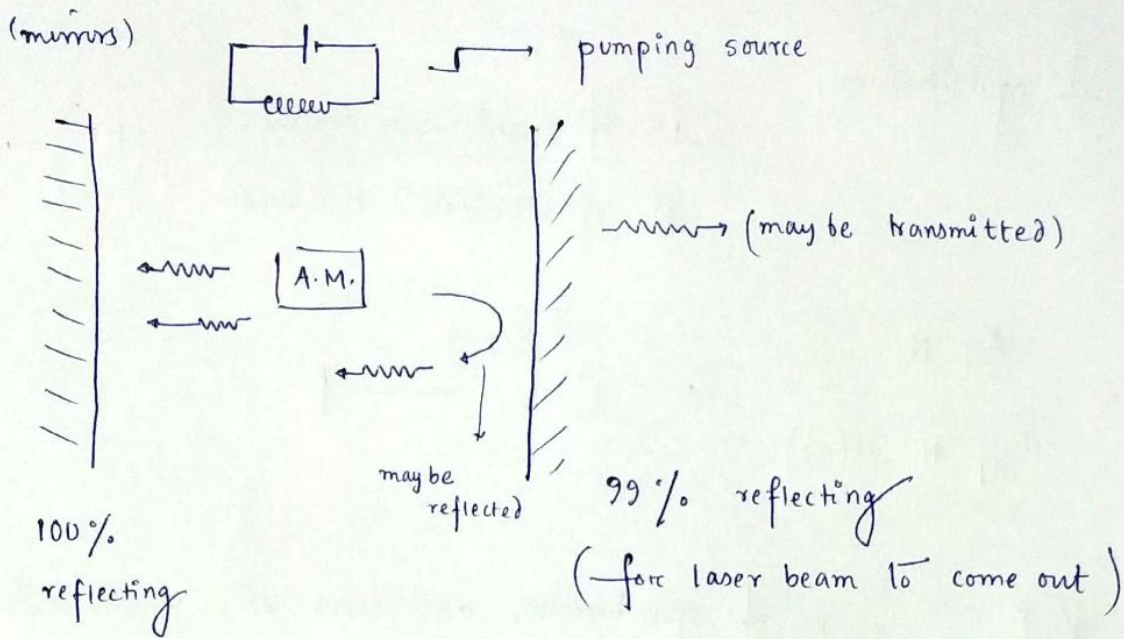 (mirrors)
pumping source
(may be transmitted)
A.M.
may be
reflected
100%
reflecting
99% reflecting
(for laser beam to come out)